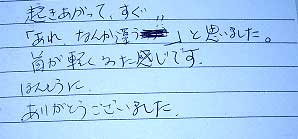 起きあがって、すぐ!!
「あれ、なんか違う」と思いました。
首が軽くなった感じです。
ほんとうに
ありがとうございました。